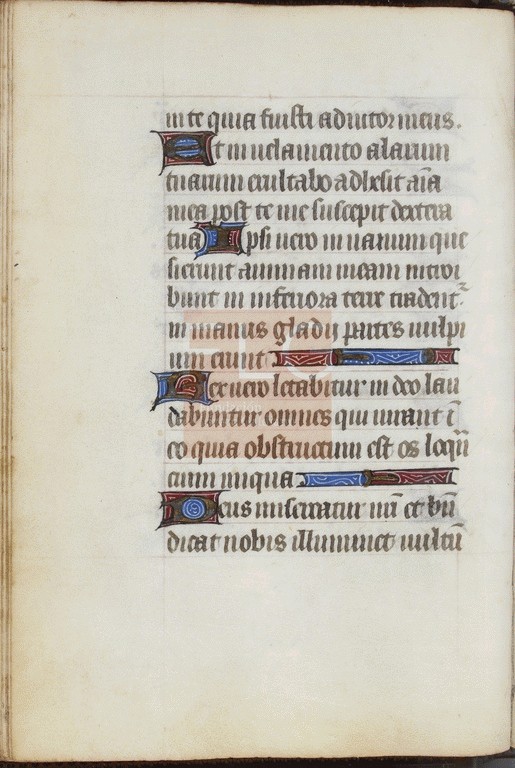 in te quia fuisti adiutor meus.
Et in uelamento alarum
tuarum exultabo adhesit aīa
mea post te me suscepit dextera
tua Ipsi uero in uanum que
sierunt animam meam introi
bunt in inferiora terre tradentᷣ
in manus gladij partes uulpi
um erunt
Rex uero letabitur in deo lau
dabuntur omnes qui iurant ī
eo quia obstructum est os loquē
cium iniqua
Deus misereatur nr̄i et bn̄
dicat nobis illuminet uultū